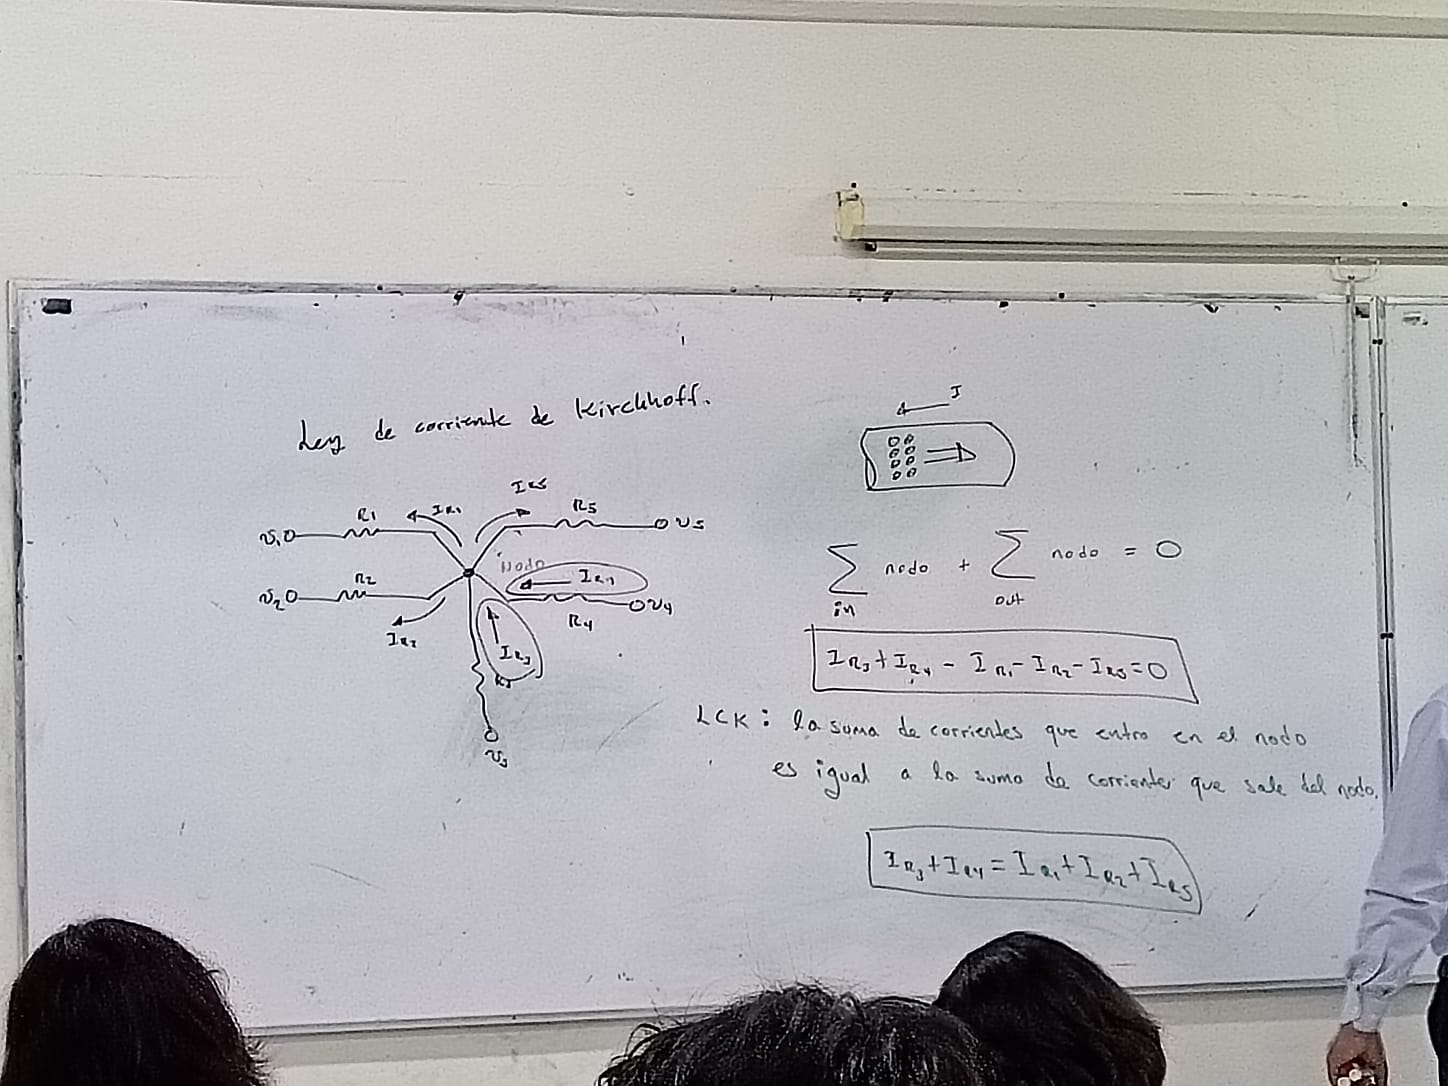 Ley de corriente de Kirchhoff.
I
IR1
IR5
V1 R1
R5 V5
Nodo
IR4
V2 R2
V4
R4
IR2
IR3
R3
V3
∑ in nodo + ∑ out nodo = 0
IR3 + IR4 - IR1 - IR2 - IR5 = 0
LCK: la suma de corrientes que entra en el nodo
es igual a la suma de corrientes que sale del nodo.
IR3 + IR4 = IR1 + IR2 + IR5